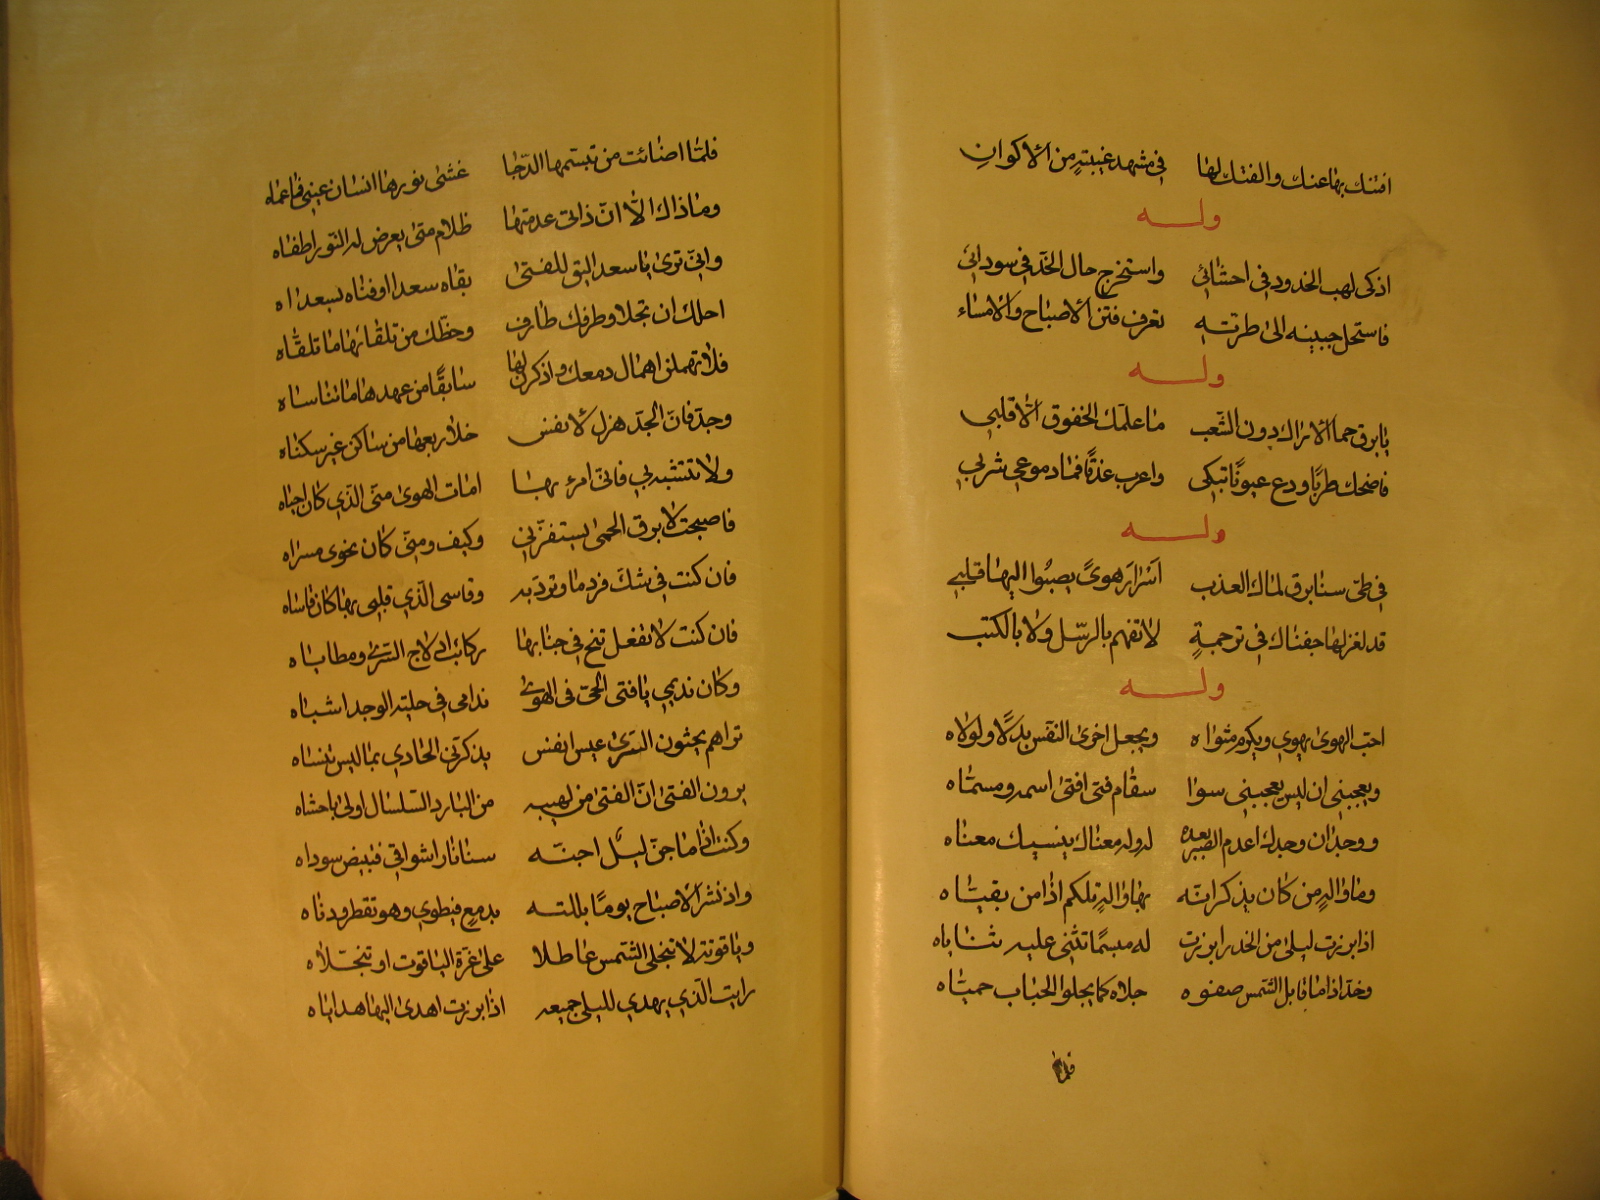 افتك بها عنك والفتك لها في مشهد غيبته من الأكوان
وله
اذكى لهب الخدود في احشائي واستخرج حال الخد في سودائي
فاستحل جبينه الى طرته تعرف فتن الأصباح والأمساء
وله
يا برق حما الأتراك دون الشعب ما علمك الخفوق الا قلبي
فاضحك طربا ودع عيونا تبكي واعرب عذبا فما دموعي شربي
وله
في طي سنا برق لماك العذب اسرار هوى يصبوا اليها قلبي
قد لغز لها جفناك في ترجمة لا تفهم بالرسل ولا بالكتب
وله
احب الهوى يهوي ويكرم مثواه ويجعل اخرى النفس بدلا ولولاه
ويعجبني ان ليس يعجبني سوا سقام فتى افتى اسمه ومسماه
ووجدان وجدك اعدم الصبر بعده له وله معناك ينسيك معناه
وما واله من كان يذكر انه بها واله تلكم اذا من بقيناه
اذا برزت ليلى من الخدر ابرزت له مبسما تثني عليه ثناياه
وخد اذا ما قابل الشمس صفوه جلاه كما يجلوا الحباب حمياه
فلما
فلما اضائت من تبسمها الدجا غشى نورها انسان عيني فاعماه
وما ذاك الا ان ذاتي عدمتها ظلام متى يعرض له النور اطفاه
واني ترى يا سعد البق للفتى بقاه سعدا او فناه بسعداه
احلك ان تجلا وطرفك طارف وحظك من تلقائها ما تلقاه
فلا تهملن اهمال دمعك واذكرن لها سابقا من عهدها ما تناساه
وجد فان الجد هزل لأنفس خلا ربعها من ساكن غير سكناه
ولا تتشبه بي فاني امرؤ بها امات الهوى مني الذي كان احياه
فاصبحت لا برق الحمى يستفزني وكيف ومني كان نحوي مسراه
فان كنت في شك فرد ما وتود به وقاسي الذي قلبي بها كان قاساه
فان كنت لا تفعل تنخ في جنابها ركائب ادلاج السرى ومطاياه
وكان نديمي يا فتى الحي في الهوى ندامى في حلية الوجد اشباه
تراهم يحثون السرى عيس انفس يذكرني الحادي بما ليس تنساه
يرون الفتى ان الفتى من لهيبه من البارد السلسال اولى باحشاه
وكنت اذا ما جن ليل اجنه سنا نار اشواقي فتبيض سوداه
واذ نشر الأصباح يوما بللته بدمع فيطوي وهو تقطر ردناه
وياقوتة لا تنجلي الشمس عاطلا على غرة الياقوت او تتجلاه
رايت الذي يهدي لليلى جميعه اذا برزت اهدى اليها هداياه